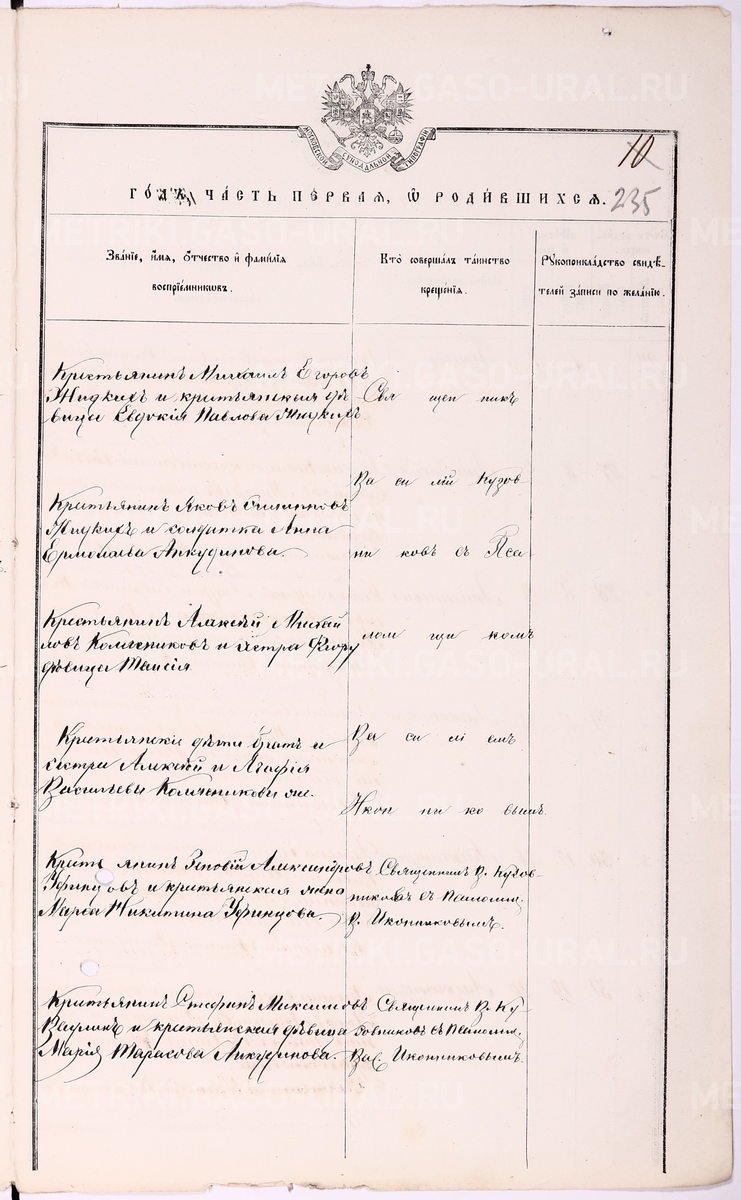 METRIKI.GASO-URAL.RU
МОСКОВСКОЙ СѴНОДАЛЬНОЙ ТИПОГРАФІИ
10
ГО́ДА, ЧА́СТЬ ПЕ́РВАЯ, Ѡ҆ РОДИ́ВШИХСЯ.
235
Зва́ніе, и҆́мя, ѻ҆́тчество и҆ фами́лїя
воспрїе́мниковъ.
Кто̀ соверша́лъ та́инство
креще́нїя.
Рꙋкоприкла́дство свидѣ́-
телей за́писи по жела́нїю.
Крестьянинъ Михаилъ Егоровъ
Жидкихъ и крестьянская дѣ-
вица Евдокія Павлова Жидкихъ.
Свя щен никъ
Ва си лій Кузов
Крестьянинъ Яковъ
Жидкихъ и солдатка Анна
Ермолаева Анкудинова.
ни ковъ съ Пса
Крестьянинъ Алексѣй Михай
ловъ Колесниковъ и сестра
дѣвица Таисія
лом щи комъ
Крестьянскіе дѣти братъ и
сестра Алексѣй и Агафія
Васильевы Колесниковы же.
Ва си лі емъ
Икон ни ко вымъ.
Кресть янинъ Зиновій Александровъ
и крестьянская жена
Марѳа Никитина
Священникъ В. Кузов-
никовъ съ Псаломщ.
В. Иконниковымъ.
Крестьянинъ Стефанъ Максимовъ
и крестьянская дѣвица
Марія Тарасова Анкудинова.
Священникъ В. Ку
зовниковъ съ Псаломщ.
Вас. Иконниковымъ.